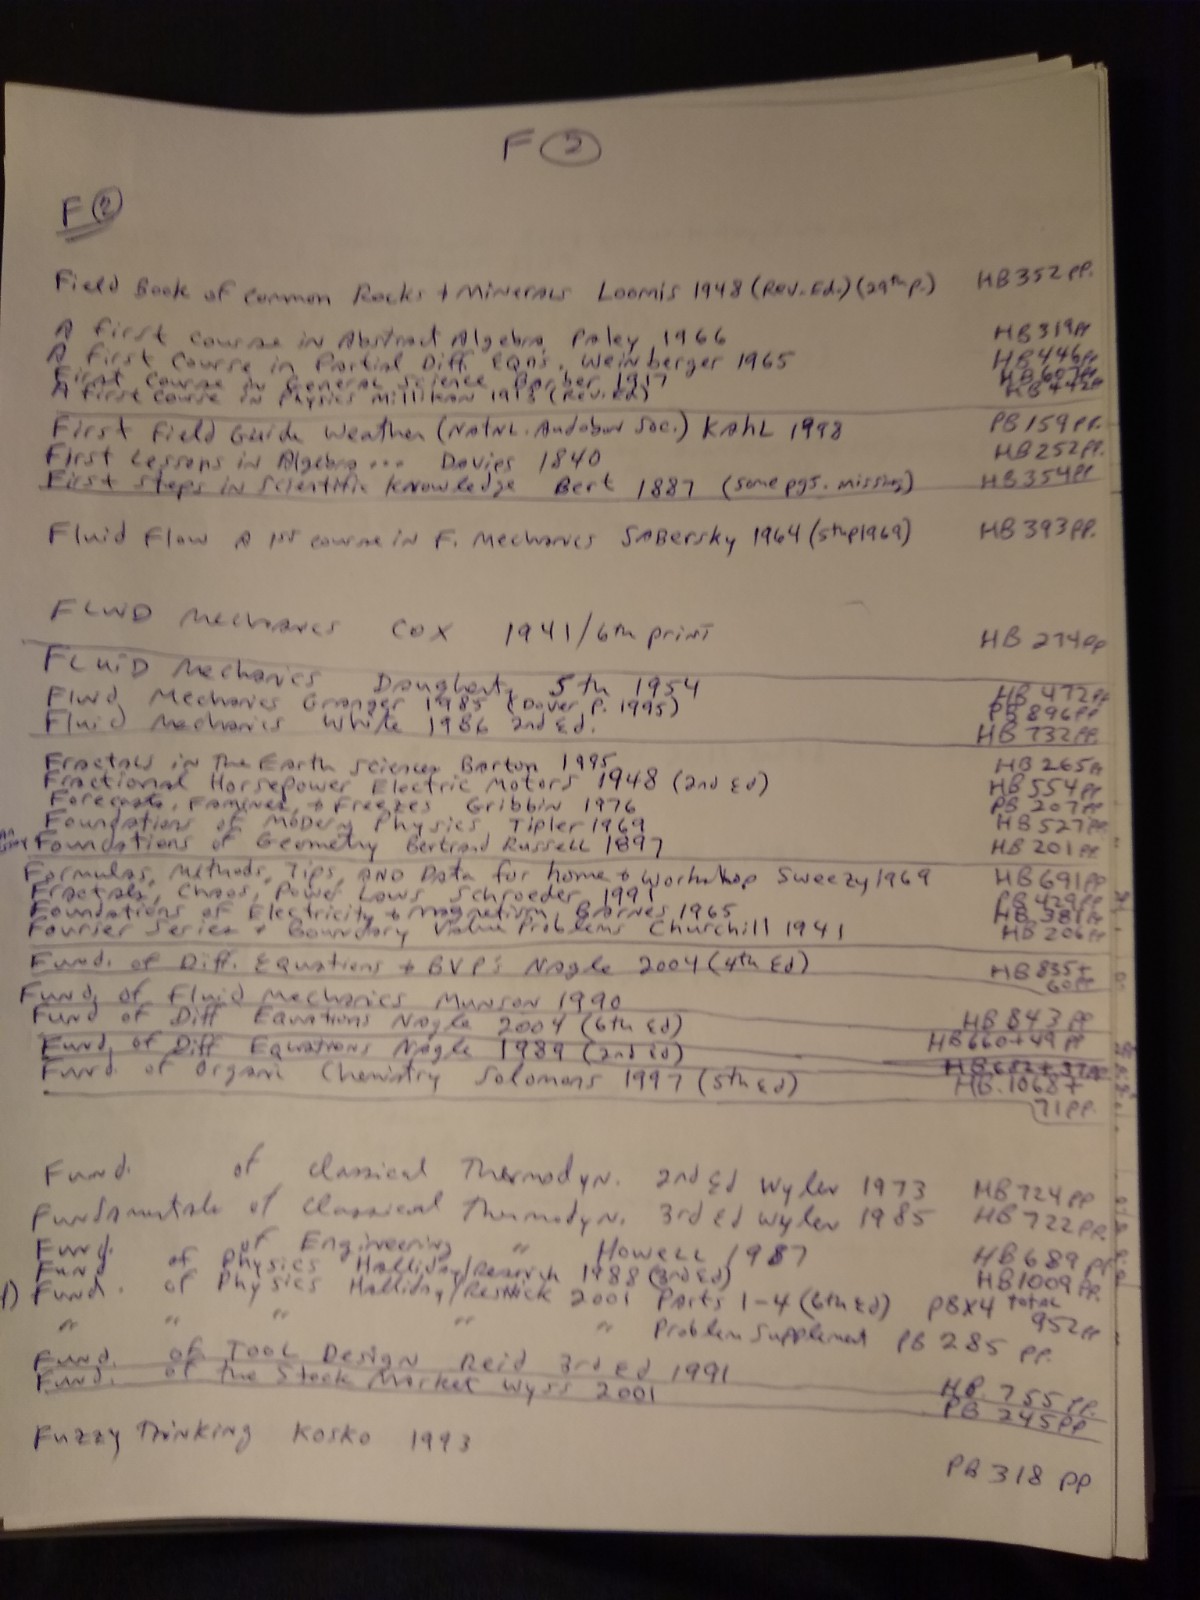 F ②
F ②
Field Book of Common Rocks + Minerals Loomis 1948 (Rev. Ed.) (29th p.) HB 352 pp.
A First Course in Abstract Algebra Paley 1966 HB 319 pp
A First Course in Partial Diff Eqn's, Weinberger 1965 HB 446 pp
First Course in General Science Barber 1917 HB 607 pp
A First Course in Physics Millikan 1913 (Rev. Ed) HB
First Field Guide Weather (Natnl. Audobon Soc.) Kahl 1998 PB 159 pp.
First Lessons in Algebra ... Davies 1840 HB 252 pp.
First Steps in Scientific Knowledge Bert 1887 (some pgs. missing) HB 354 pp
Fluid Flow A 1st course in F. Mechanics Sabersky 1964 (5th p 1969) HB 393 pp.
FLUID Mechanics Cox 1941/6th print HB 274 pp
FLUID Mechanics Daugherty 5th 1954 HB 472 pp
Fluid Mechanics Granger 1985 (Dover p. 1995) PB 896 pp
Fluid Mechanics White 1986 2nd Ed. HB 732 pp.
Fractals in The Earth Sciences Barton 1995 HB 265 pp
Fractional Horsepower Electric Motors 1948 (2nd Ed) HB 554 pp
Forecasts, Famines, + Freezes Gribbin 1976 PB 207 pp
Foundations of Modern Physics Tipler 1969 HB 527 pp
Foundations of Geometry Bertrand Russell 1897 HB 201 pp
Formulas, Methods, Tips, AND Data for home + Workshop Sweezy 1969 HB 691 pp
Fractals, Chaos, Power Laws Schroeder 1991 PB 429 pp
Foundations of Electricity + Magnetism Barnes 1965 HB 381 pp
Fourier Series + Boundary Value Problems Churchill 1941 HB 206 pp
Fund. of Diff. Equations + BVP's Nagle 2004 (4th Ed) HB 835 +
60 pp
Fund. of Fluid Mechanics Munson 1990 HB 843 pp
Fund of Diff Equations Nagle 2004 (6th Ed) HB 660 + 49 pp
Fund. of Diff Equations Nagle 1989 (2nd Ed) HB 652 + 37 pp
Fund. of Organic Chemistry Solomons 1997 (5th Ed) HB. 1068 +
71 pp.
Fund. of Classical Thermodyn. 2nd Ed Wylen 1973 HB 724 pp
Fundamentals of Classical Thermodyn. 3rd Ed Wylen 1985 HB 722 pp.
Fund. of Engineering " Howell 1987 HB 689 pp
Fund of Physics Halliday/Resnick 1988 (3rd Ed) HB 1009 pp.
Fund. of Physics Halliday/Resnick 2001 Parts 1-4 (6th Ed) PBX4 Total 952 pp
" " " " " Problem Supplement PB 285 pp.
Fund. of Tool Design Reid 3rd Ed 1991 HB. 755 pp.
Fund. of the Stock Market Wyss 2001 PB 245 pp
Fuzzy Thinking Kosko 1993 PB 318 pp